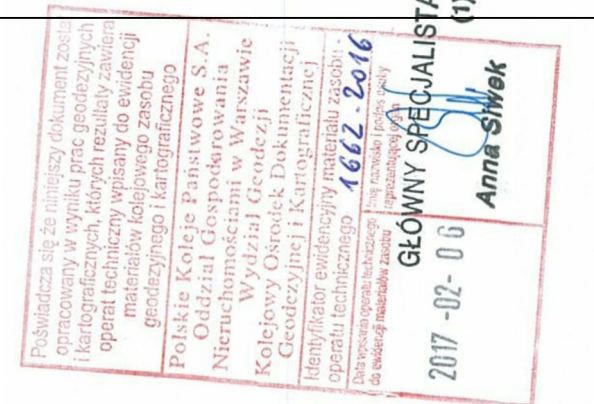 Poświadcza się że niniejszy dokument został
opracowany w wyniku prac geodezyjnych
i kartograficznych, których rezultaty zawiera
operat techniczny wpisany do ewidencji
materiałów kolejowego zasobu
geodezyjnego i kartograficznego
Polskie Koleje Państwowe S.A.
Oddział Gospodarowania
Nieruchomościami w Warszawie
Wydział Geodezji
Kolejowy Ośrodek Dokumentacji
Geodezyjnej i Kartograficznej
Identyfikator ewidencyjny materiału zasobu -
operatu technicznego 1662.2016
Data wpisania operatu technicznego
do ewidencji materiałów zasobu
2017 -02- 06
Imię, nazwisko i podpis osoby
reprezentującej organ
GŁÓWNY SPECJALISTA
(1)
Anna Siwek